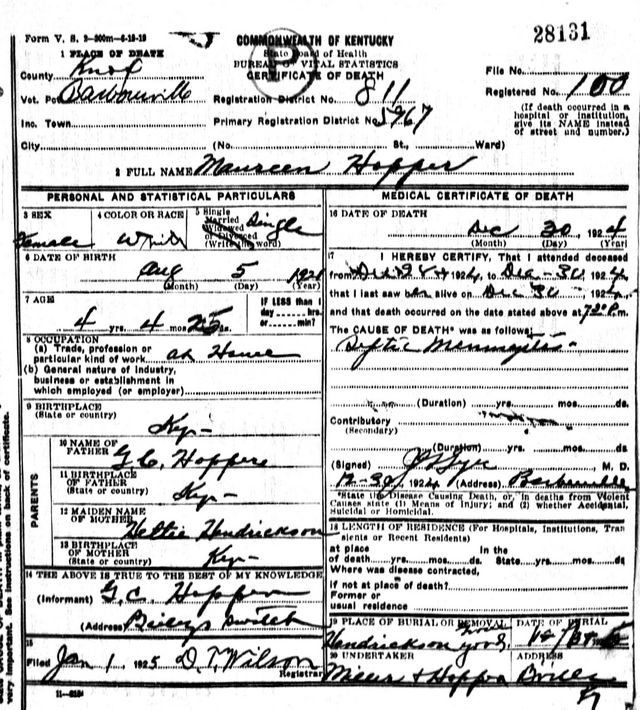 Form V. S. 2-200m-6-19-19
COMMONWEALTH OF KENTUCKY
28131
1 PLACE OF DEATH
State Board of Health
BUREAU OF VITAL STATISTICS
County Knox
CERTIFICATE OF DEATH
File No.
Vot. Barbourville
Registration District No. 811
Registered No. 100
Inc. Town
Primary Registration District No. 5967
(If death occurred in a
hospital or institution,
give its NAME instead
of street and number.)
City (No. St., Ward)
2 FULL NAME Maureen Hopper
PERSONAL AND STATISTICAL PARTICULARS
3 SEX Female
4 COLOR OR RACE White
5 Single
Married
Widowed
or Divorced
(Write the word) Single
6 DATE OF BIRTH
Aug 5 192
(Month) (Day) (Year)
7 AGE
4 yrs. 4 mos. 25 ds.
IF LESS than 1
day hrs.
or min?
8 OCCUPATION
(a) Trade, profession or
particular kind of work at House
(b) General nature of industry,
business or establishment in
which employed (or employer)
9 BIRTHPLACE
(State or country) Ky-
PARENTS
10 NAME OF
FATHER G.C. Hopper
11 BIRTHPLACE
OF FATHER
(State or country) Ky-
12 MAIDEN NAME
OF MOTHER Hettie Hendrickson
13 BIRTHPLACE
OF MOTHER
(State or country) Ky-
14 THE ABOVE IS TRUE TO THE BEST OF MY KNOWLEDGE
(Informant) G.C. Hopper
(Address) Baileys Switch
15
Filed Jan 1 1925 D.T. Wilson
Registrar
11-6184
MEDICAL CERTIFICATE OF DEATH
16 DATE OF DEATH
Dec 30, 1924
(Month) (Day) (Year)
17 I HEREBY CERTIFY, That I attended deceased
from Dec 1924, to Dec-30, 1924
that I last saw her alive on Dec 30, 1924,
and that death occurred on the date stated above at m.
The CAUSE OF DEATH* was as follows:
Septic Meningitis
(Duration) yrs. mos. ds.
Contributory
(Secondary)
(Duration) yrs. mos. ds.
(Signed) M. D.
12-30, 1924 (Address) Barbourville
*State the Disease Causing Death, or, in deaths from Violent
Causes state (1) Means of Injury; and (2) whether Accidental,
Suicidal or Homicidal.
18 LENGTH OF RESIDENCE (For Hospitals, Institutions, Tran
sients or Recent Residents)
at place In the
of death yrs. mos. ds. State yrs. mos. ds.
Where was disease contracted,
if not at place of death?
Former or
usual residence
19 PLACE OF BURIAL OR REMOVAL
DATE OF BURIAL
Hendrickson
20 UNDERTAKER
ADDRESS
Miller + Hopper
very important. See instructions on back of certificate.